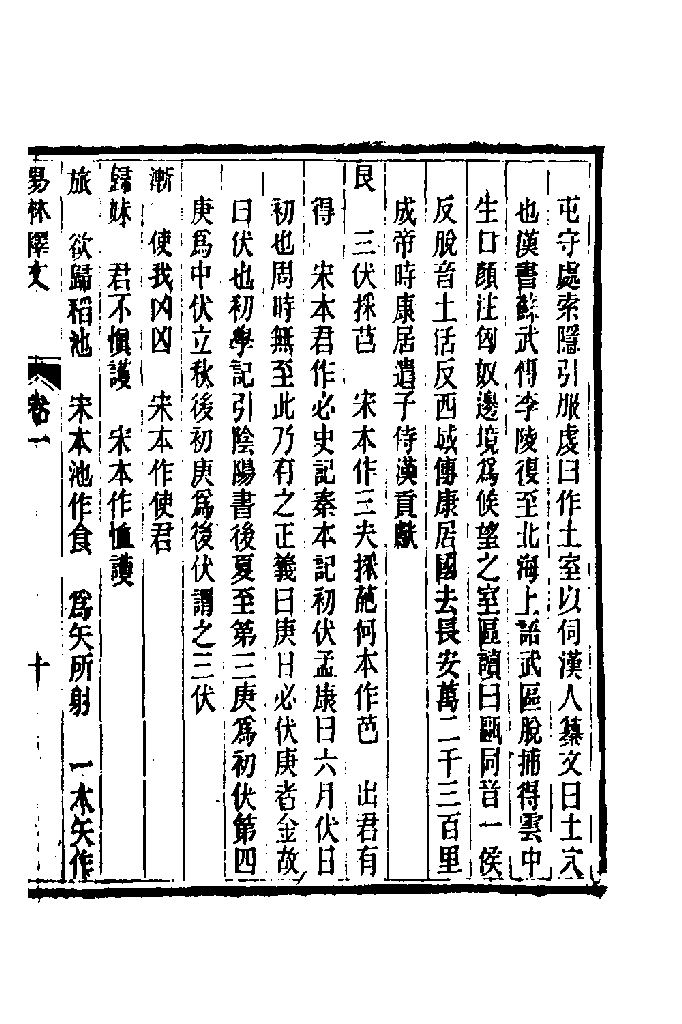 屯守處索隱引服虔曰作土室以伺漢人纂文曰土穴
也漢書蘇武傳李陵復至北海上語武區脫捕得雲中
生口顏注匈奴邊境爲候望之室區讀曰甌同音一侯
反脫音土活反西域傳康居國去長安萬二千三百里
成帝時康居遣子侍漢貢獻
艮　三伏採芭　宋本作三夫採葩何本作芭　出君有
得　宋本君作必史記秦本記初伏孟康曰六月伏日
初也周時無至此乃有之正義曰庚日必伏庚者金故
曰伏也初學記引陰陽書後夏至第三庚爲初伏第四
庚爲中伏立秋後初庚爲後伏謂之三伏
漸　使我凶凶　宋本作使君
歸妹　君不愼護　宋本作恤護
旅　欲歸稻池　宋本池作食　爲矢所射　一本矢作
易林釋文　卷一　十